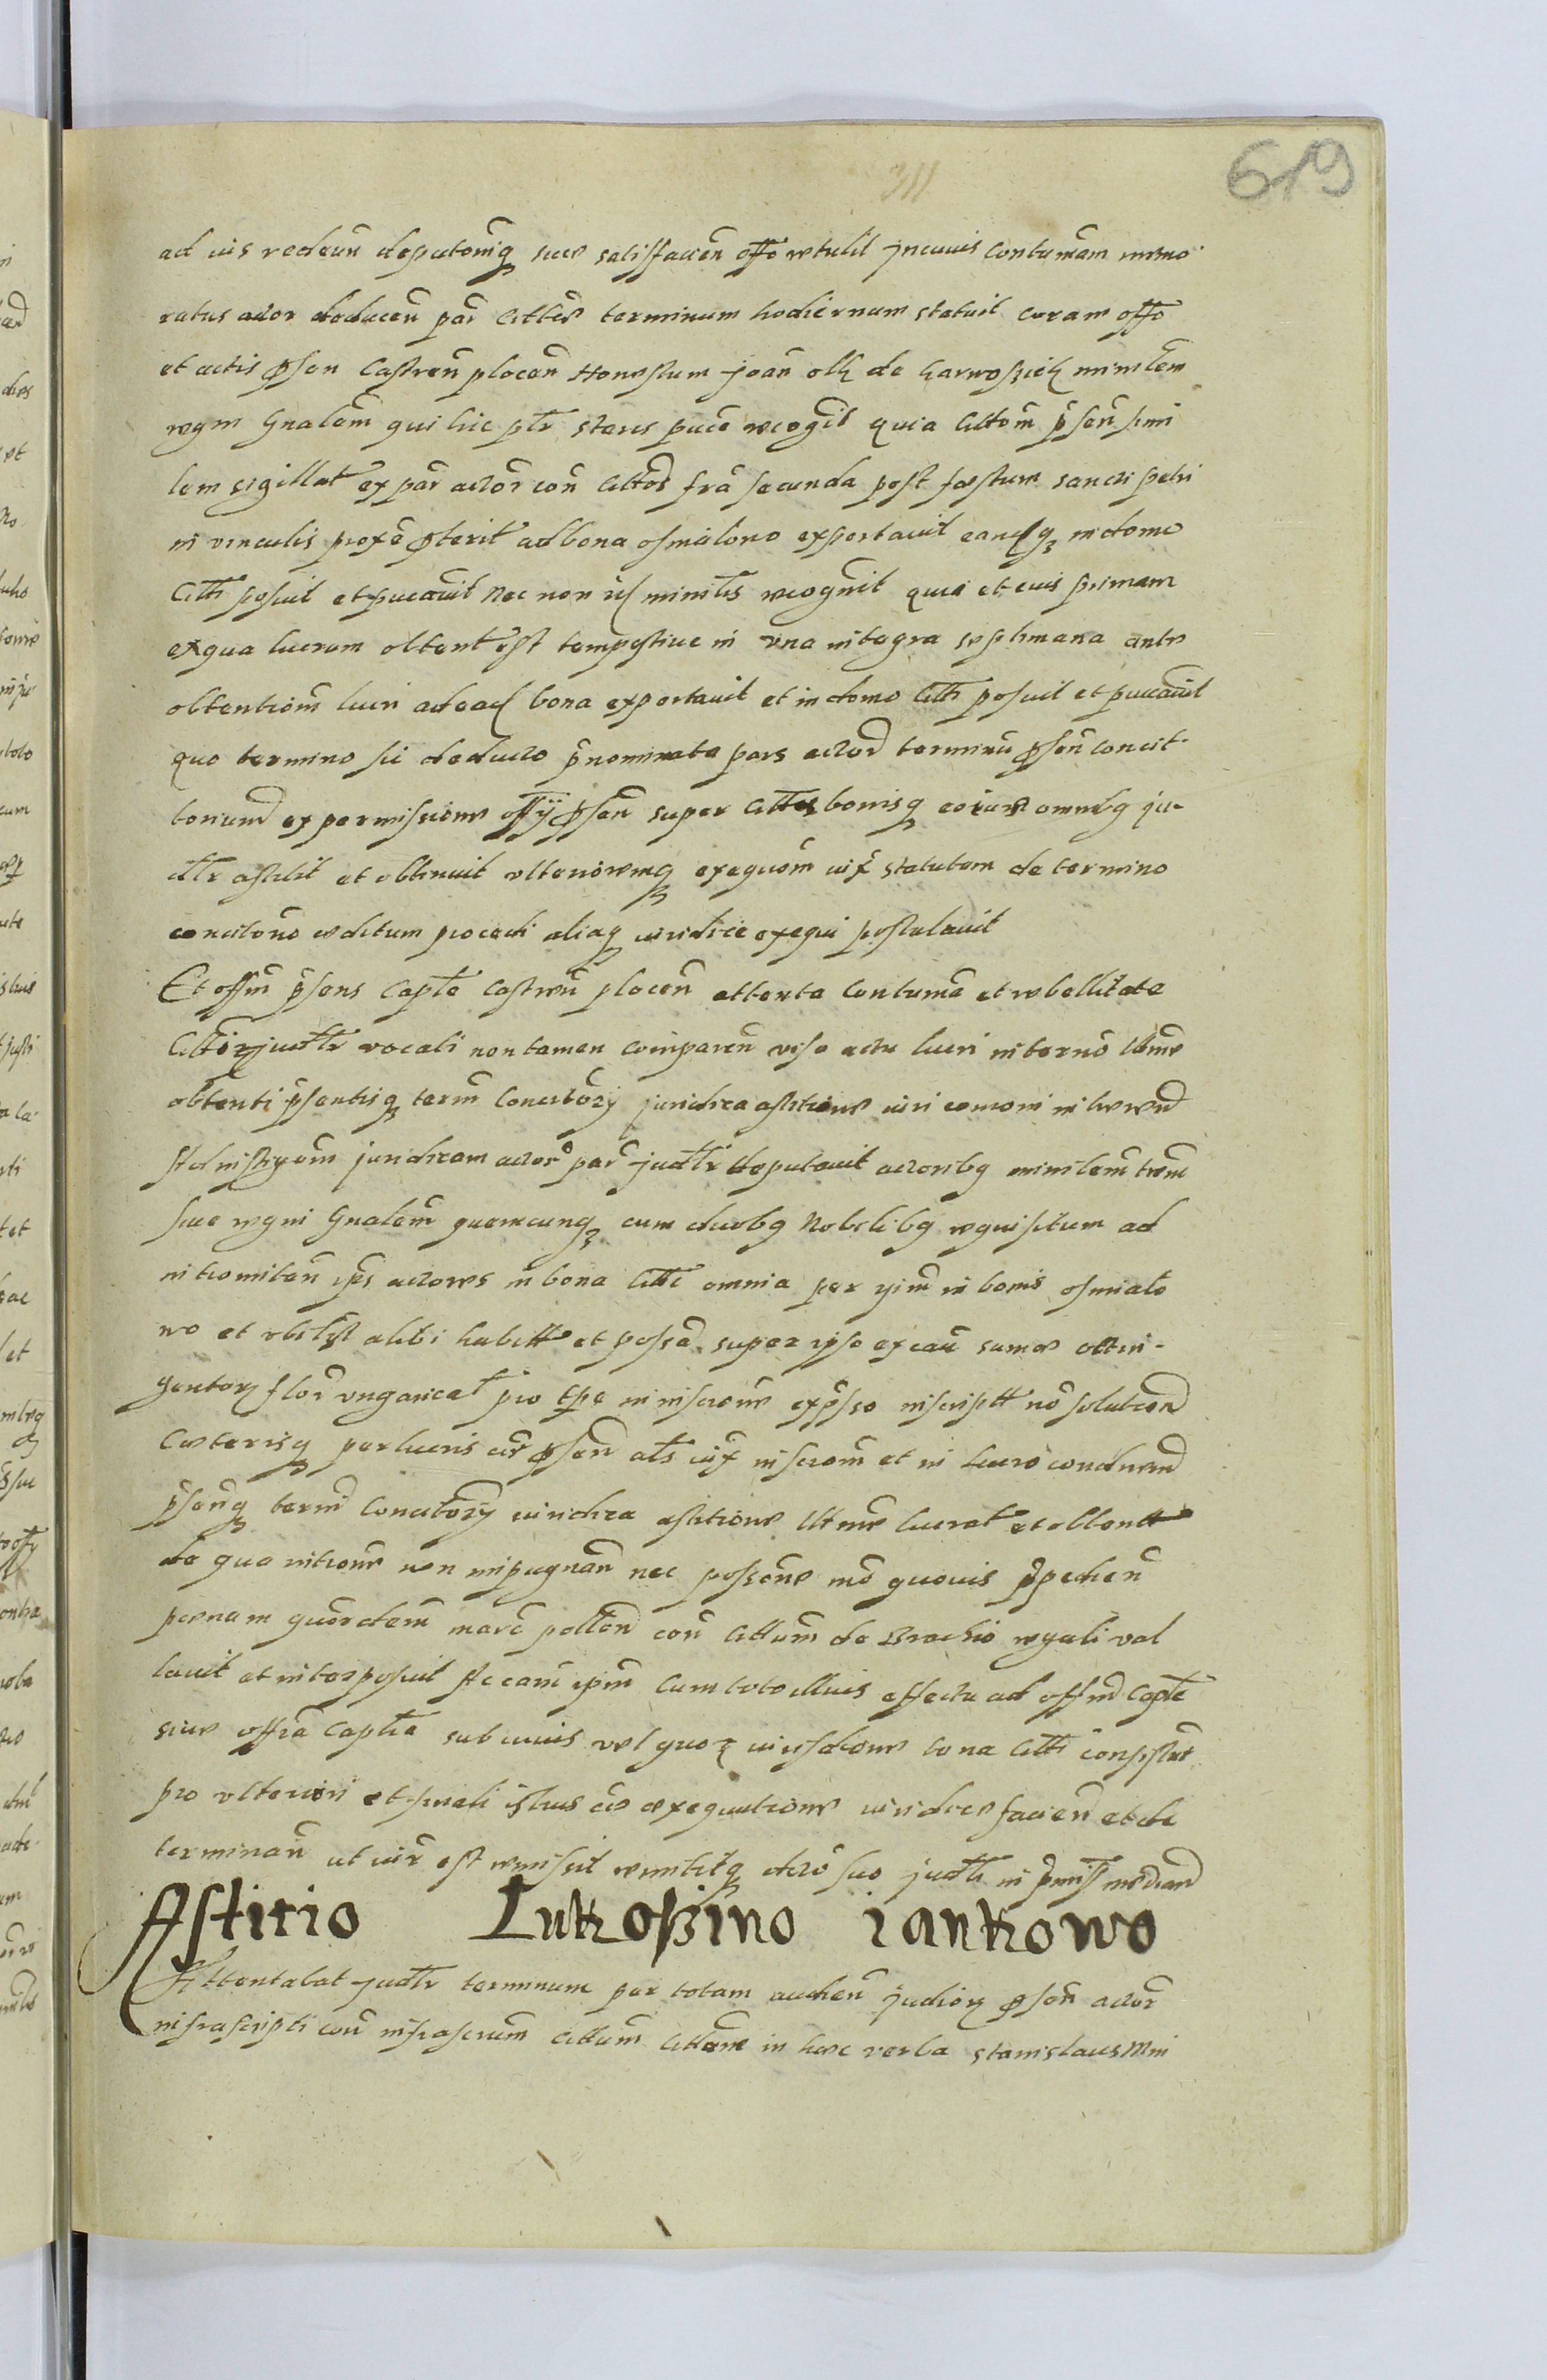 619
311
ad ius redeun̄ deputonīq suæ satisfacien̄ offo retulit Jn cuius Contumām memo
ratus actor deducen̄ par̄ Citt̄es terminum hodiernum statuit coram offo
et actis p̄sen Castren̄ plocen̄ Honestum Joan̄ olk de karwosziek minrl̄em
regni Gnālem̄ qui hic ptr̄ stans puce recogt̄ Quia Citt̄om̄ p̄sen̄ simi
lem sigillat̄ ex par̄ actor̄ con̄ Citt̄os fr̄a secunda post festum sancti petri
in vinculis proxe p̄terit̄ ad bona osmialowo exportavit eandq̄ in domo
Citt̄i posuit et pucavit Nec non id minrl̄is recognvit quia et cuis primam
ex qua lucrum obtent̄ est tempestive in vna integra septimana ante
obtentionem̄ lucri ad ead bona exportavit et in domo Citt̄i posuit et pucavit
quo termino sic deducto p̄nominata pars actor̄ terminū p̄sen̄ Concit
toriund̄ ex permissione offÿ p̄sen̄ super Citt̄os bonisq eorum omnibq ju
dltr astitit et obtinuit vlterioremq exequom̄ iux̄ statutum de termino
concitono editum procedi aliaq iuridice exequi postulavit
Et offm̄ p̄sens Capte Castren̄ plocen̄ attenta Contumā et rebellitate
Citt̄orz judltr vocati non tamen comparen̄ viso actu lucri in termo Ultime
obtenti p̄sentisq term̄ Concitōrÿ juridica astitione iuri comoni inherend̄
Ad instigom̄ juridicam actor̄ par̄ judltr deputavit actoribq minrl̄em trem̄
sive regni Gnālem̄ quemcunq cum duobq Nobilibq requisitum ad
intromitten̄ ips̄ actores in bona Citt̄i omnia per eum̄ in bonis osmialo
wo et vbilibt alibi habitt̄ et possē super ipso ex cau sumæ octin
gentorz flor̄ vngarical̄ pro tpe in inscrione exp̄sso inscriptt nō solution̄
Cæterisq per lucris cir̄ p̄sen̄ als iux̄ inscrom̄ et in lucro condnend̄
p̄senq term̄ Concitōrÿ iuridica astitione Ultime lucrat̄ et obtent
de qua intrōne non impugnan̄ nec possēne mo quovis p̄pedien̄
poenam quōrdem̄ marc̄ pollen̄ con̄ Citt̄um̄ de Brachio regali val
lavit et interposuit Ac eam̄ ipm̄ Cum toto illius effectu ad offm̄ Capte
sive offia Captia sub cuius vel quorz iurisdcione bona Citt̄i consistat
pro vlteriori et finali istius ca exequutione iuridice facien̄ et de
terminan̄ ut iur̄ est remisit remittitq dcro suo judltr in p̄mis̄ median̄
Astitio Lutkoszino iankowo
Attentabat judltr terminum per totam audien̄ judiorz p̄sen̄ actor
infrascripti con̄ infrascrum̄ Citt̄um̄ Citt̄one in hæc verba Stanislaus Mni